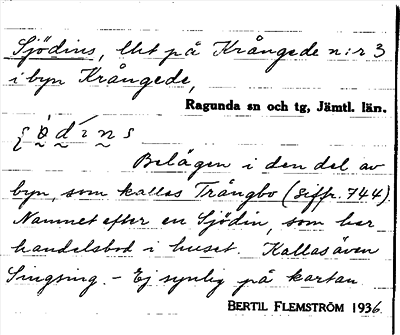 Sjödins, lht på Krångede n:r 3
i byn Krångede,
Ragunda sn och tg, Jämtl. län.
Belägen i den del av
byn, som kallas Trångbo (siffr. 744).
Namnet efter en Sjödin, som har
handelsbod i huset. Kallas även
Singsing. - Ej synlig på kartan.
BERTIL FLEMSTRÖM 1936.